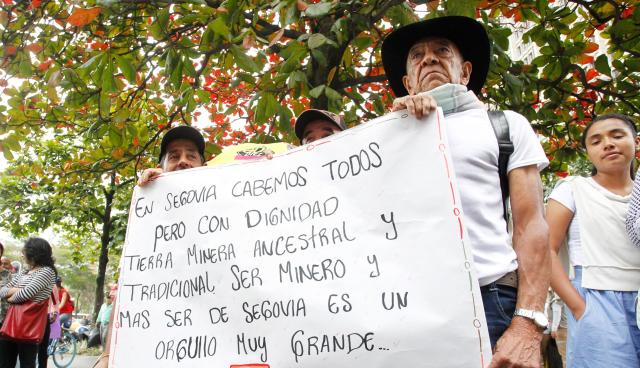 EN SEGOVIA CABEMOS TODOS
PERO CON DIGNIDAD
TIERRA MINERA ANCESTRAL Y
TRADICIONAL SER MINERO Y
MAS SER DE SEGOVIA ES UN
ORGULLO MUY GRANDE...